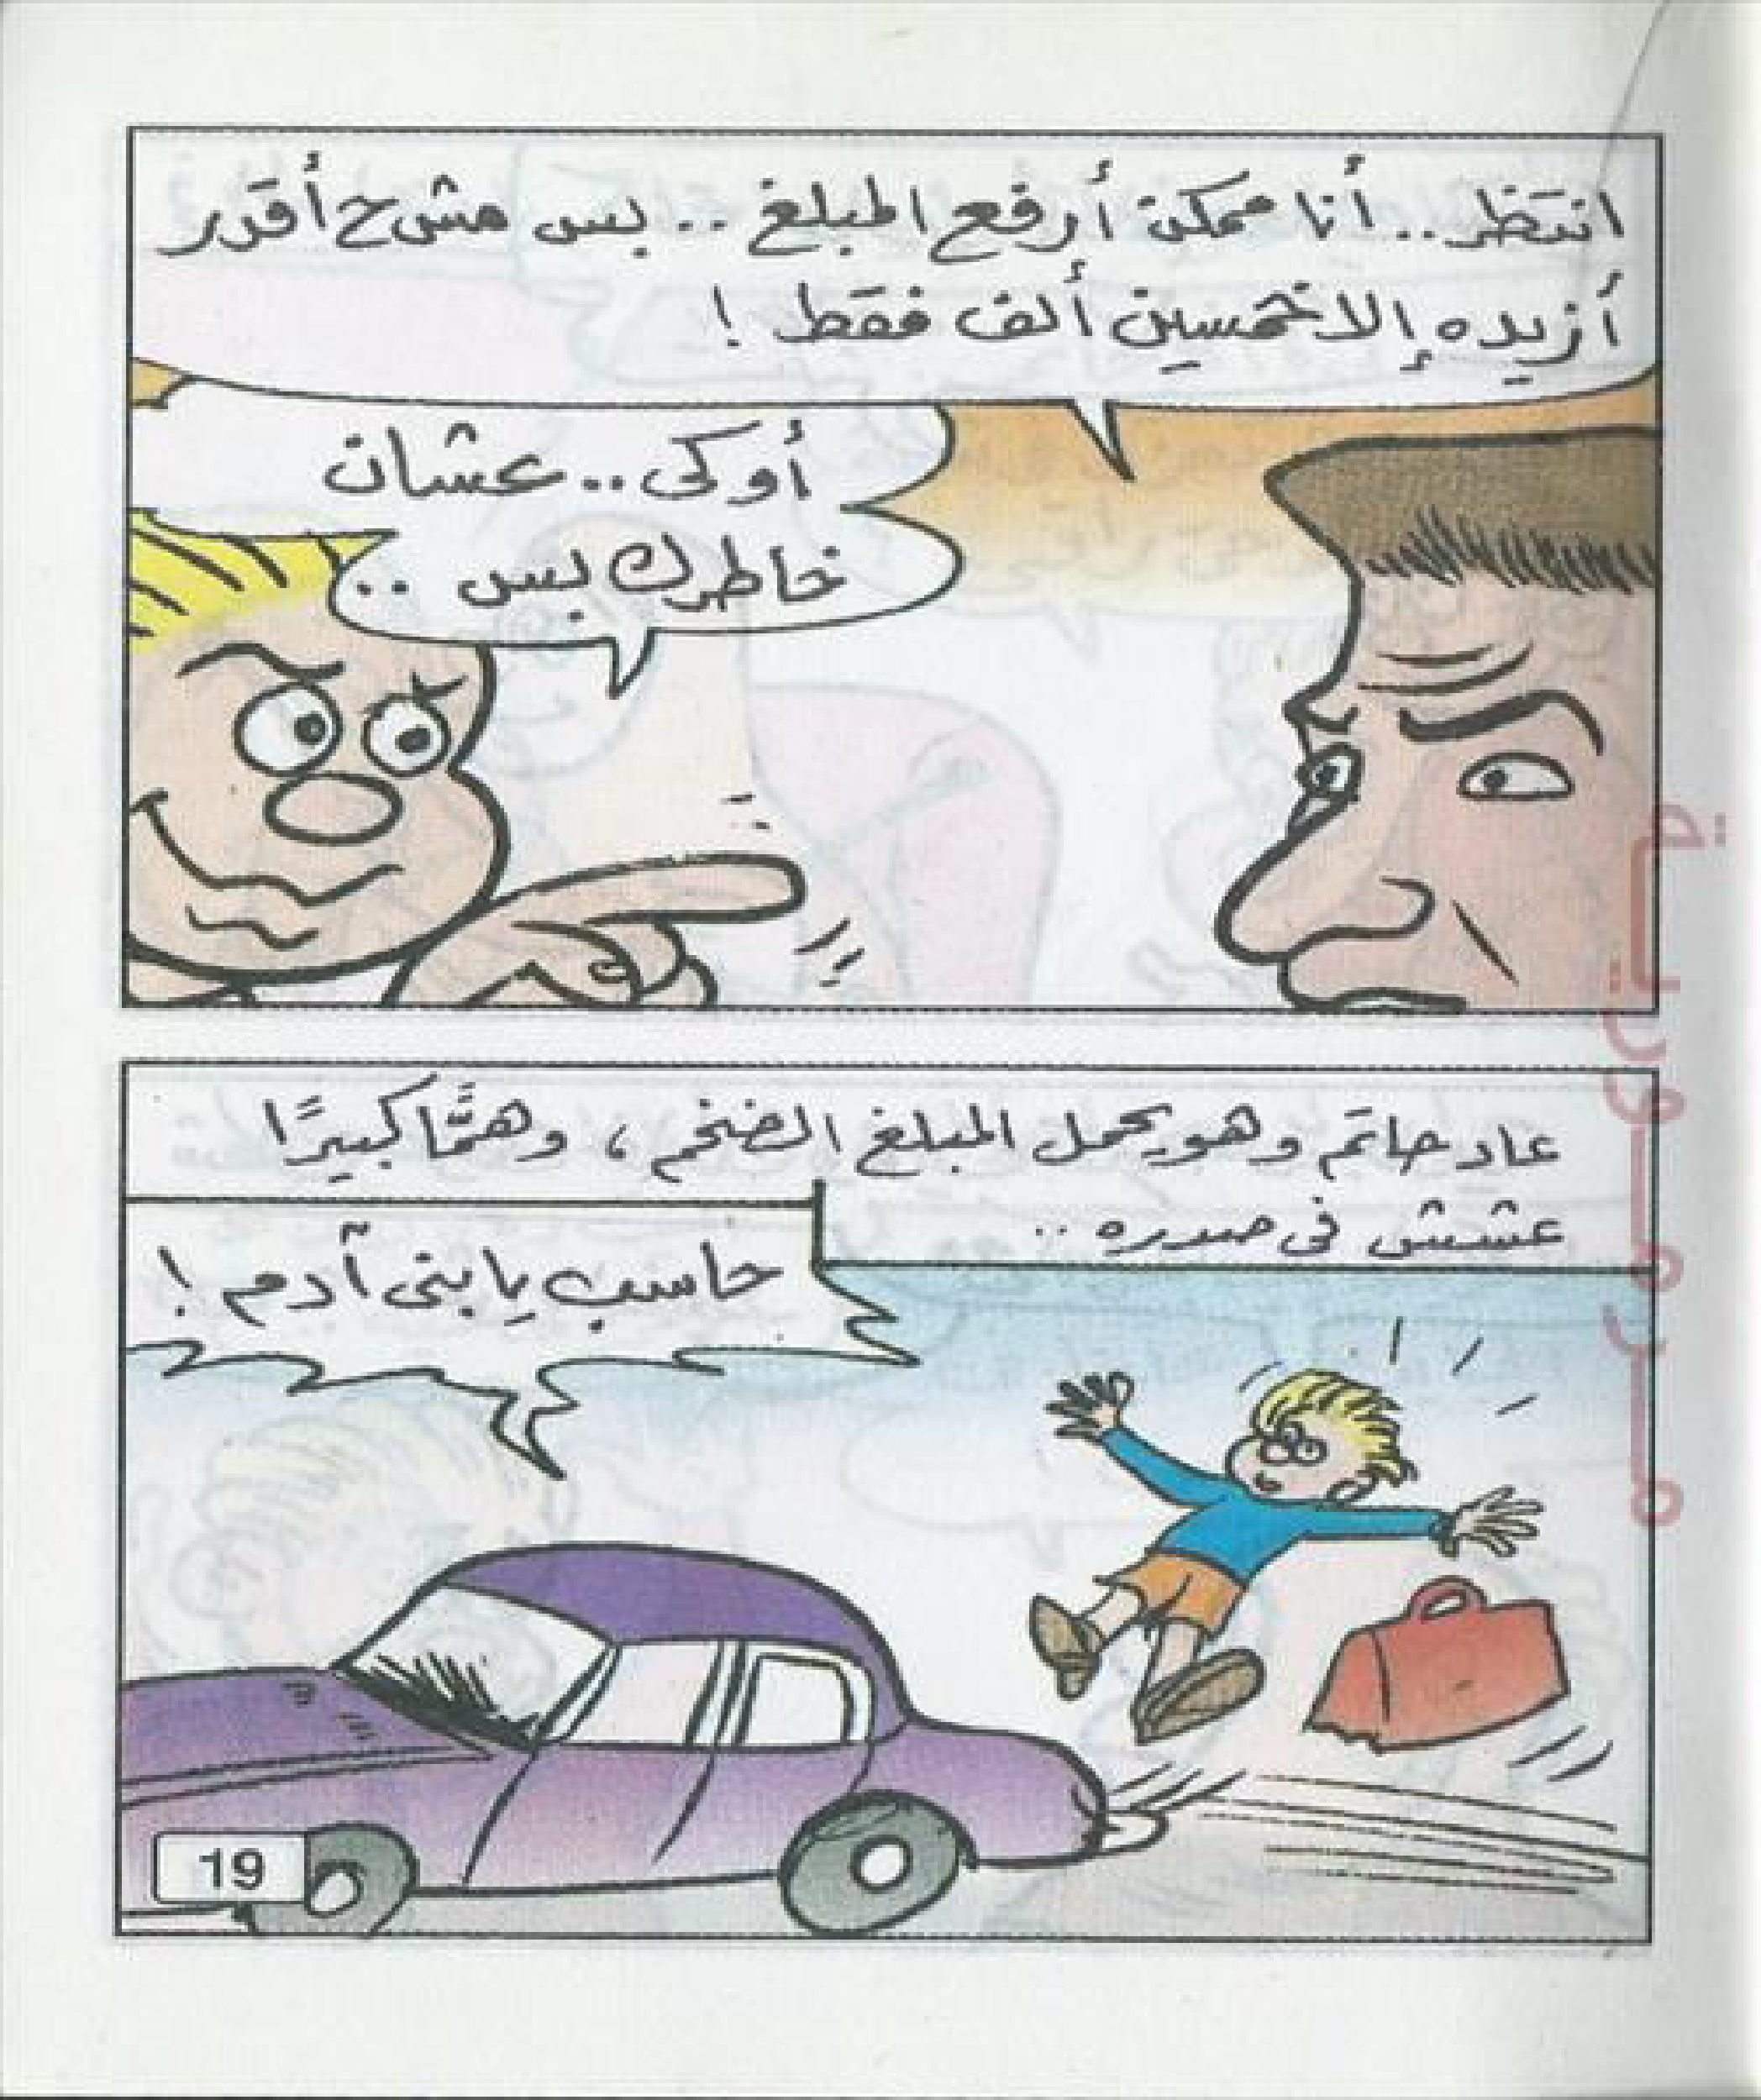 انتظر.. أنا ممكن أرفع المبلغ.. بس مش ح أقدر
أزيده إلا خمسين ألف فقط !
أوكى.. عشان
خاطرك بس ..
عاد حاتم وهو يحمل المبلغ الضخم ، وهمًّا كبيرًا
عشش فى صدره ..
حاسب يا بنى آدم !
19